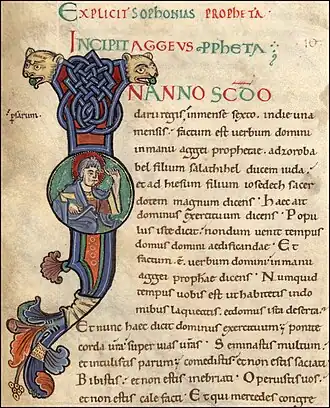 EXPLICIT SOPHONIAS PROPHETA·
INCIPIT AGGEVS PPHETA
IN ANNO SCDO
psarum·
darii regis· inmense sexto· indie una
mensis· factum est verbum domini
inmanu aggei prophetae· adzoroba
bel filium salathihel ducem iuda·
et ad hiesum filium iosedech sacer
dotem magnum dicens· Haec ait
dominus exercituum dicens· Popu
lus iste dicit· nondum venit tempus
domus domini aedificandae· Et
factum ē· verbum domini inmanu
aggei prophae dicens· Numquid
tempus vobis est ut habitetis indo
mibus laqueatis· et domus ista deserta·
Et nunc haec dicit dominus exercituum· ponite
corda vra super vias vras· Seminastis multum·
et intulistis parum· comedistis et non estis saciati·
Bibistis· et non estis inebriati· Operuistis vos·
et non estis cale facti· Et qui mercedes congre